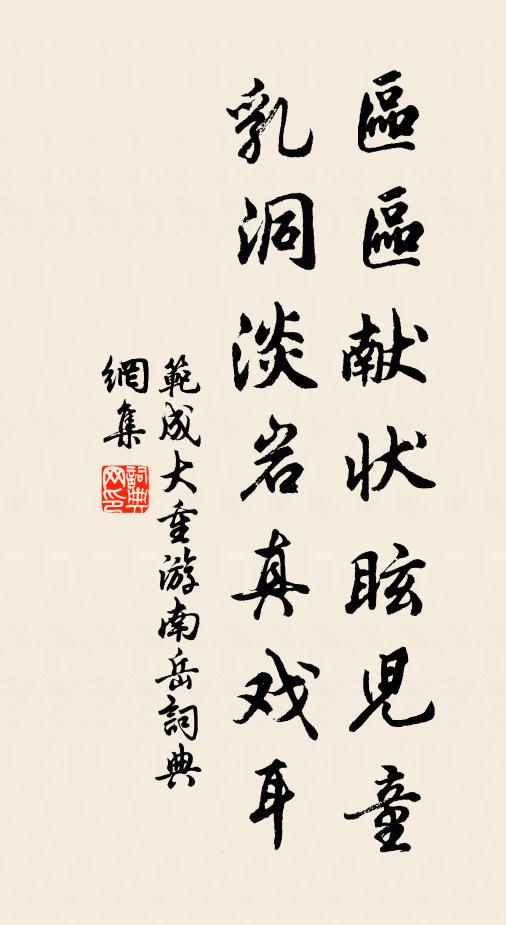 區區献状眩児童
乳洞淡岩真戏耳
範成大重游南岳詞典
網集
詞典
网印